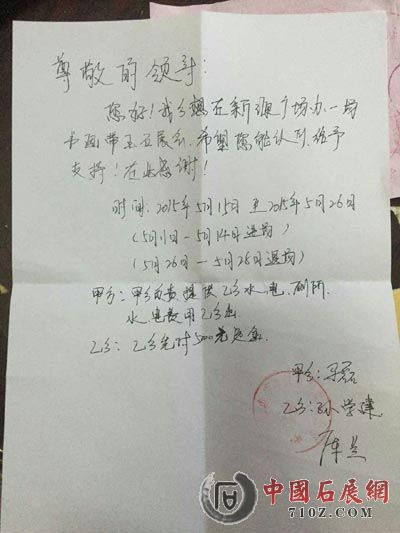 尊敬的领导:
您好!我方想在新源广场办一场
书画带玉石展会,希望您能给予
支持!在此感谢!
时间:2015年5月15日至2015年5月26日
(5月11日-5月14日进场)
(5月26日-5月28日退场)
甲方:甲方负责提供乙方水电、厕所
水电费用乙方出
乙方:乙方先付5000元定金.
甲方:
乙方:孙学建
中國石展網
710Z.COM